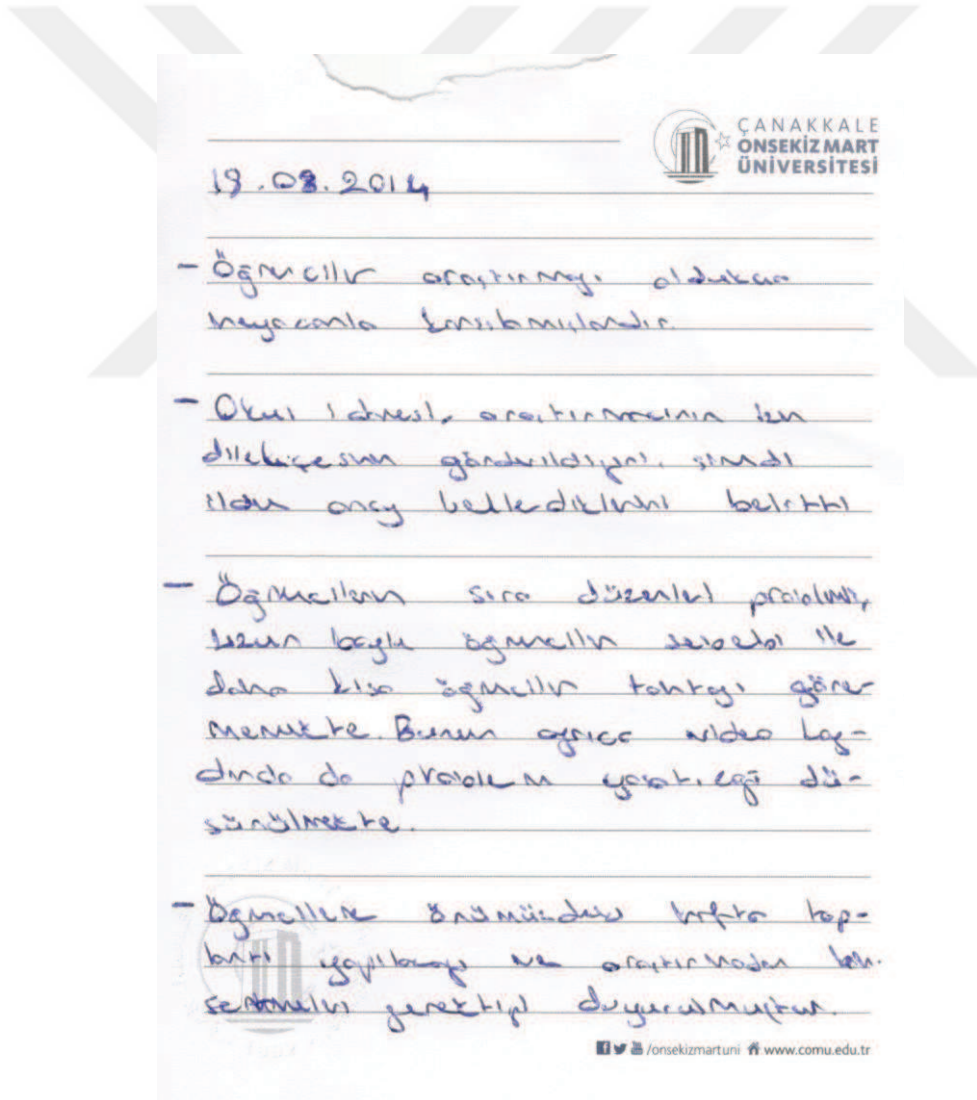 ÇANAKKALE
ONSEKİZ MART
ÜNİVERSİTESİ
19.08.2014
- Öğrenciler araştırmayı oldukça
heyecanla karşılamışlardır.
- Okul idaresi, araştırmacının izin
dilekçesinin gönderildiğini, şimdi
ilden onay beklediklerini belirtti
- Öğrencilerin sıra düzenleri problemli,
uzun boylu öğrenciler sebebi ile
daha kısa öğrenciler tahtayı göre-
memekte. Bunun ayrıca video kay-
dında da problem yaşatacağı dü-
şünülmekte.
- Öğrencilere önümüzdeki hafta top-
lantı yapılacağı ve araştırmadan
gerektiği duyurulmuştur.
/onsekizmartuni www.comu.edu.tr